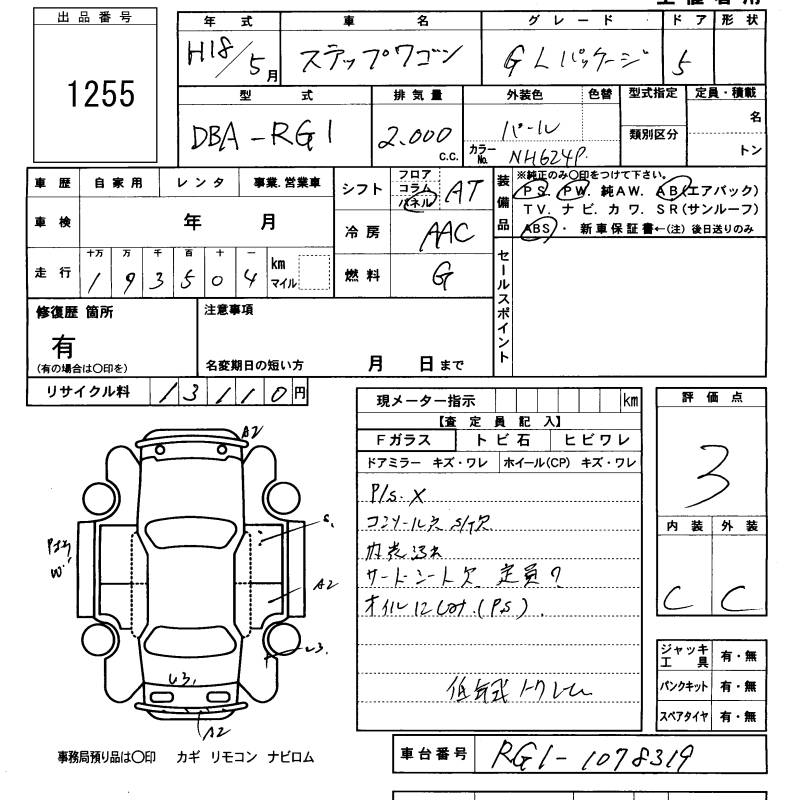 出品番号
1255
年式 車名 グレード ドア 形状
H18/5月 ステップワゴン G Lパッケージ 5
型式 排気量 外装色 色替 型式指定 定員・積載
DBA-RG1 2.000 c.c. パール 類別区分 名
カラーNo. NH624P トン
車歴 自家用 レンタ 事業.営業車
シフト フロア コラム パネル AT
装備品 ※純正のみ〇印をつけて下さい。
PS. PW. 純AW. AB(エアバック)
TV. ナビ. カワ. SR(サンルーフ)
ABS・ 新車保証書←(注) 後日送りのみ
車検 年 月
冷房 AAC
走行 十万 万 千 百 十 一
1 9 3 5 0 4 km マイル
燃料 G
セールスポイント
修復歴 箇所
有
(有の場合は〇印を)
注意事項
名変期日の短い方 月 日まで
リサイクル料 13110円
現メーター指示 km
【査定員記入】
Fガラス トビ石 ヒビワレ
ドアミラー キズ・ワレ ホイール(CP) キズ・ワレ
P/S.X
コンソール穴 S/T欠
サードシート欠 定員?
評価点
3
内装 外装
C C
A2
S.
A2
U3.
U3.
A2
W
ジャッキ工具 有・無
パンクキット 有・無
スペアタイヤ 有・無
事務局預り品は〇印 カギ リモコン ナビロム
車台番号 RG1-1078319